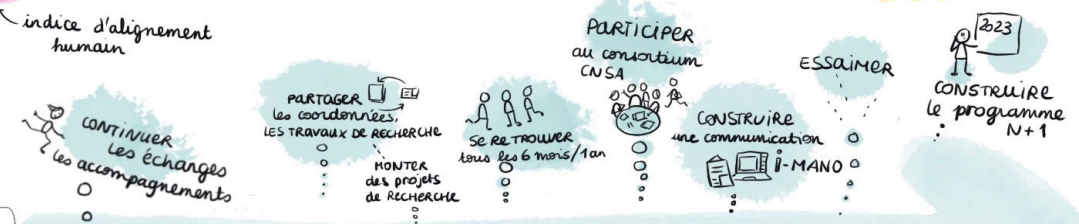 indice d'alignement
humain
CONTINUER
les échanges
les accompagnements
PARTAGER
les coordonnées,
LES TRAVAUX DE RECHERCHE
MONTER
des projets
de RECHERCHE
SE RETROUVER
tous les 6 mois/1an
PARTICIPER
au consortium
CNSA
CONSTRUIRE
une communication
i-MANO
ESSAIMER
2023
CONSTRUIRE
le programme
N+1